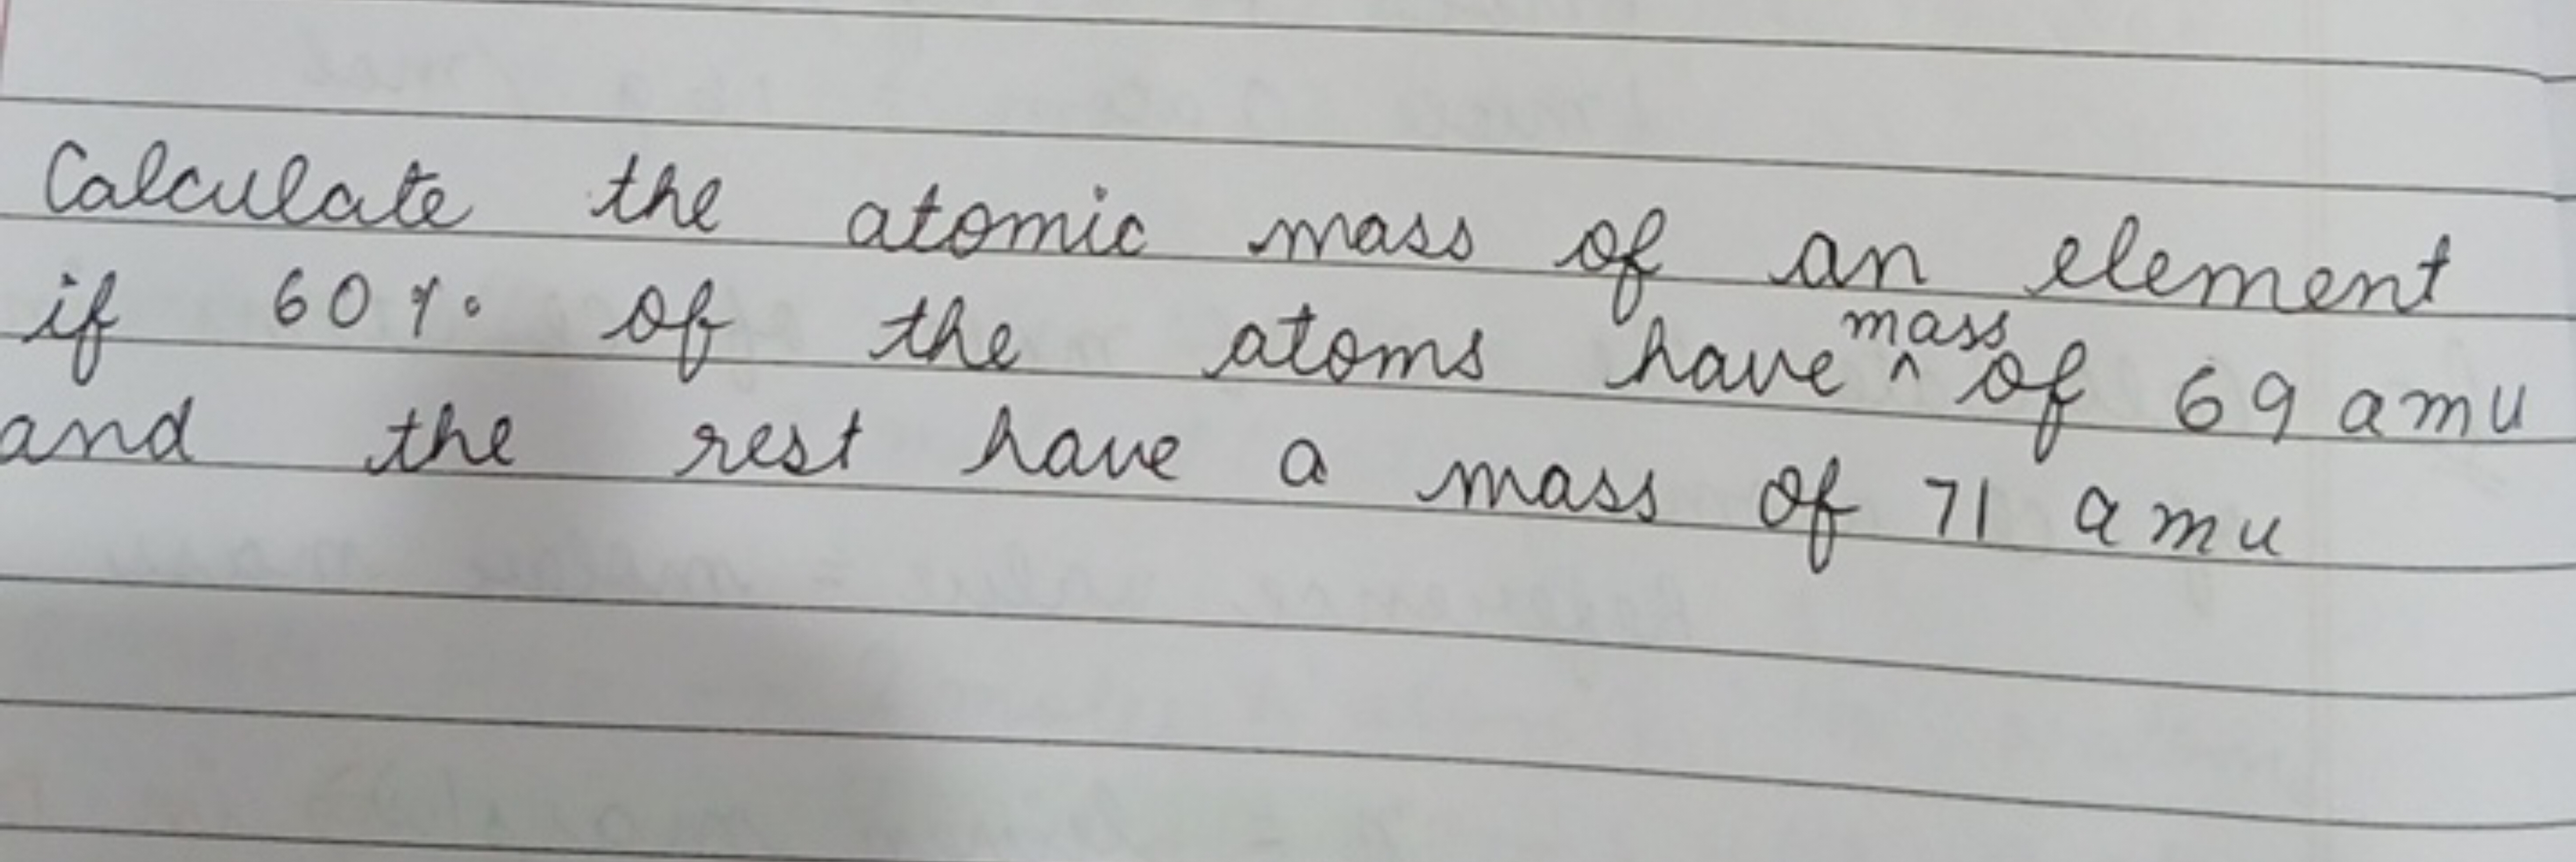 Calculate the atomic mass of an element
if 60% of the atoms have ^mass of 69 amu
and the rest have a mass of 71 amu